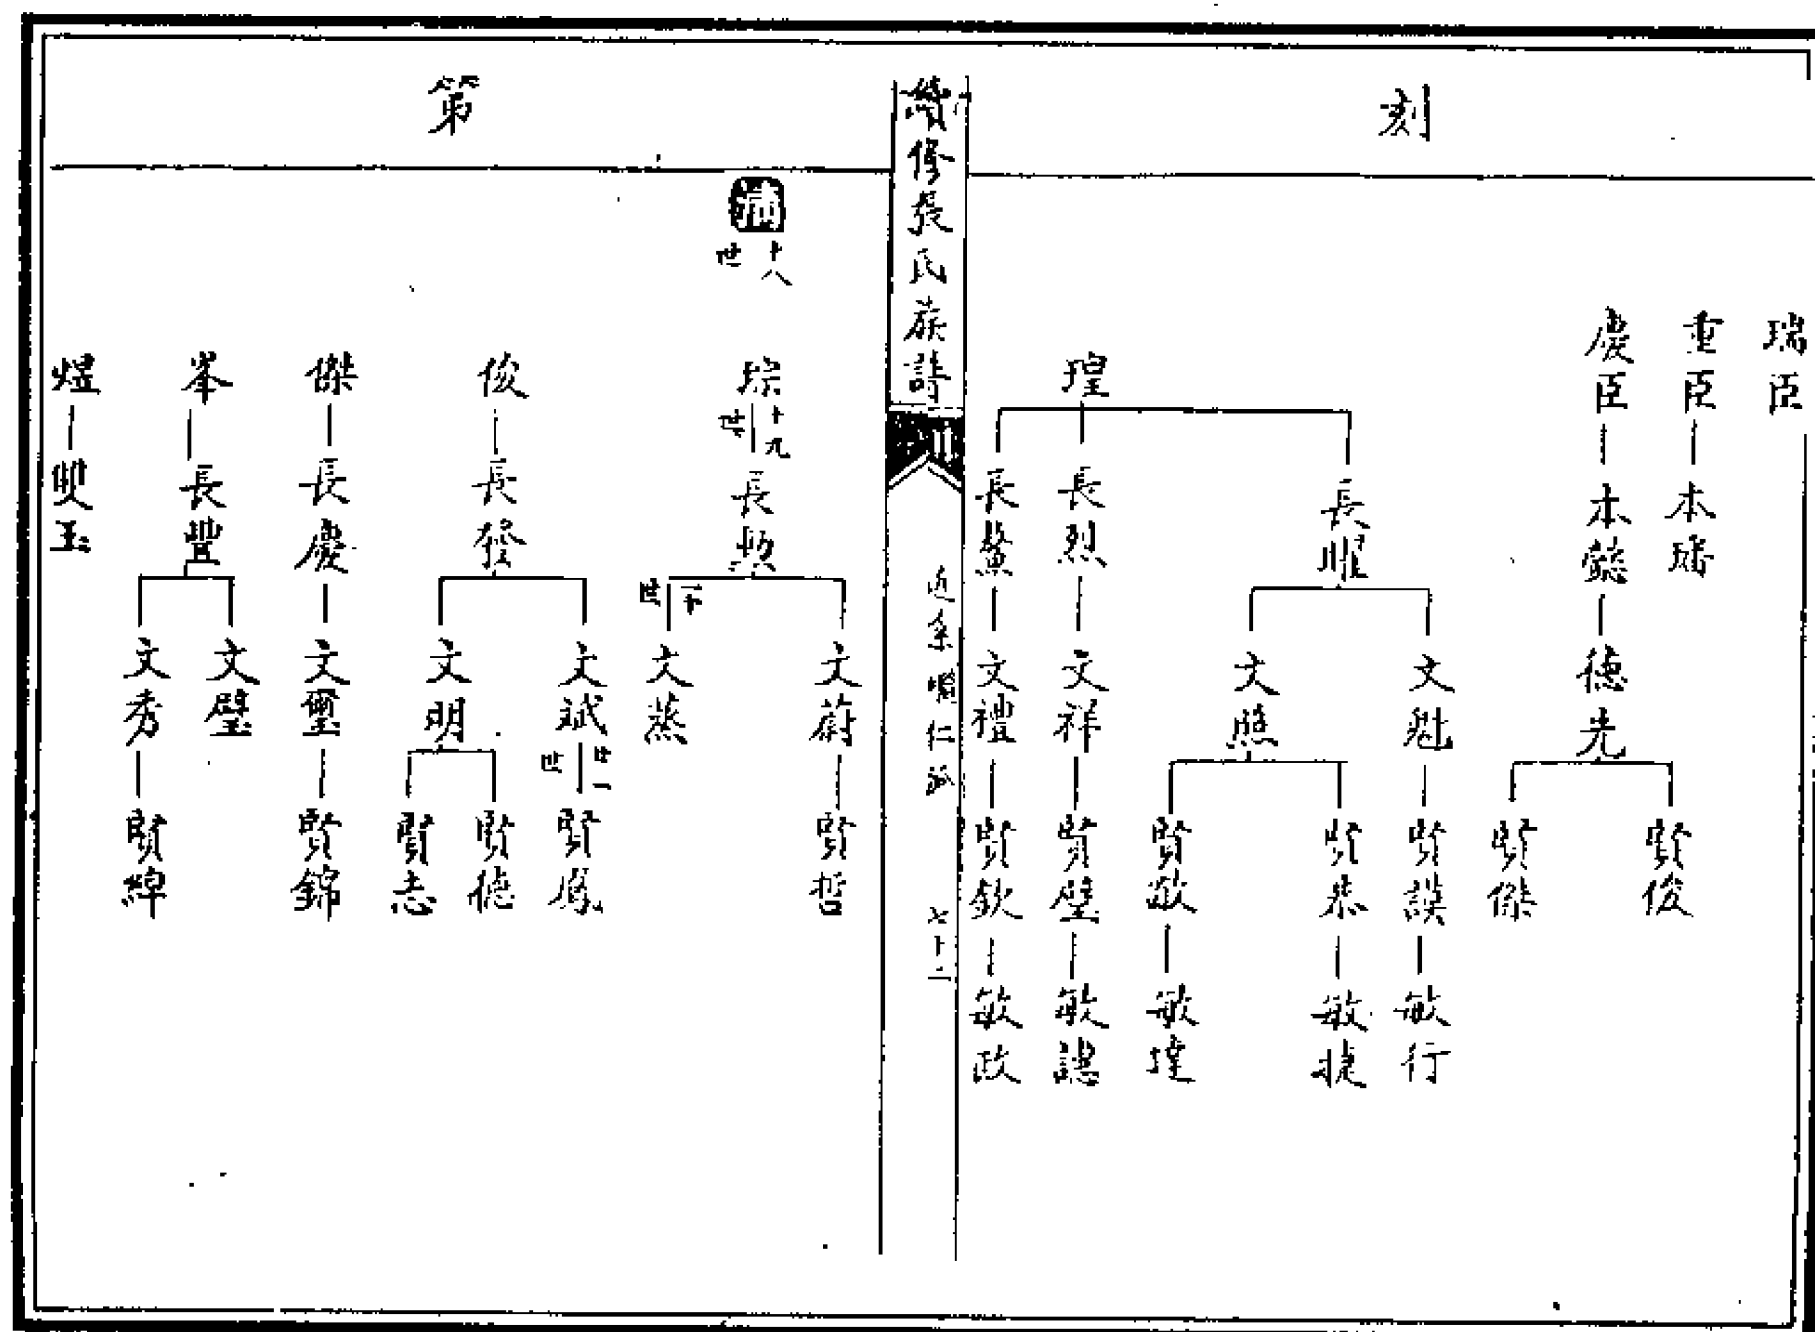 刻
瑞臣
重臣
本璠
慶臣
本懿
德先
賢俊
賢傑
瑝
長耀
文魁
賢謨
敏行
文照
賢恭
敏捷
賢敬
敏達
長烈
文祥
賢璧
敏聰
長鰲
文禮
賢欽
敏政
續修張氏族譜
七十二
第
十八世
琮
十九世
文蔚
賢哲
二十世
文蒸
俊
長發
文斌
廿一世
賢鳳
文明
賢德
賢志
傑
長慶
文璽
賢錦
峯
長豐
文璧
文秀
賢緯
煜
雙玉